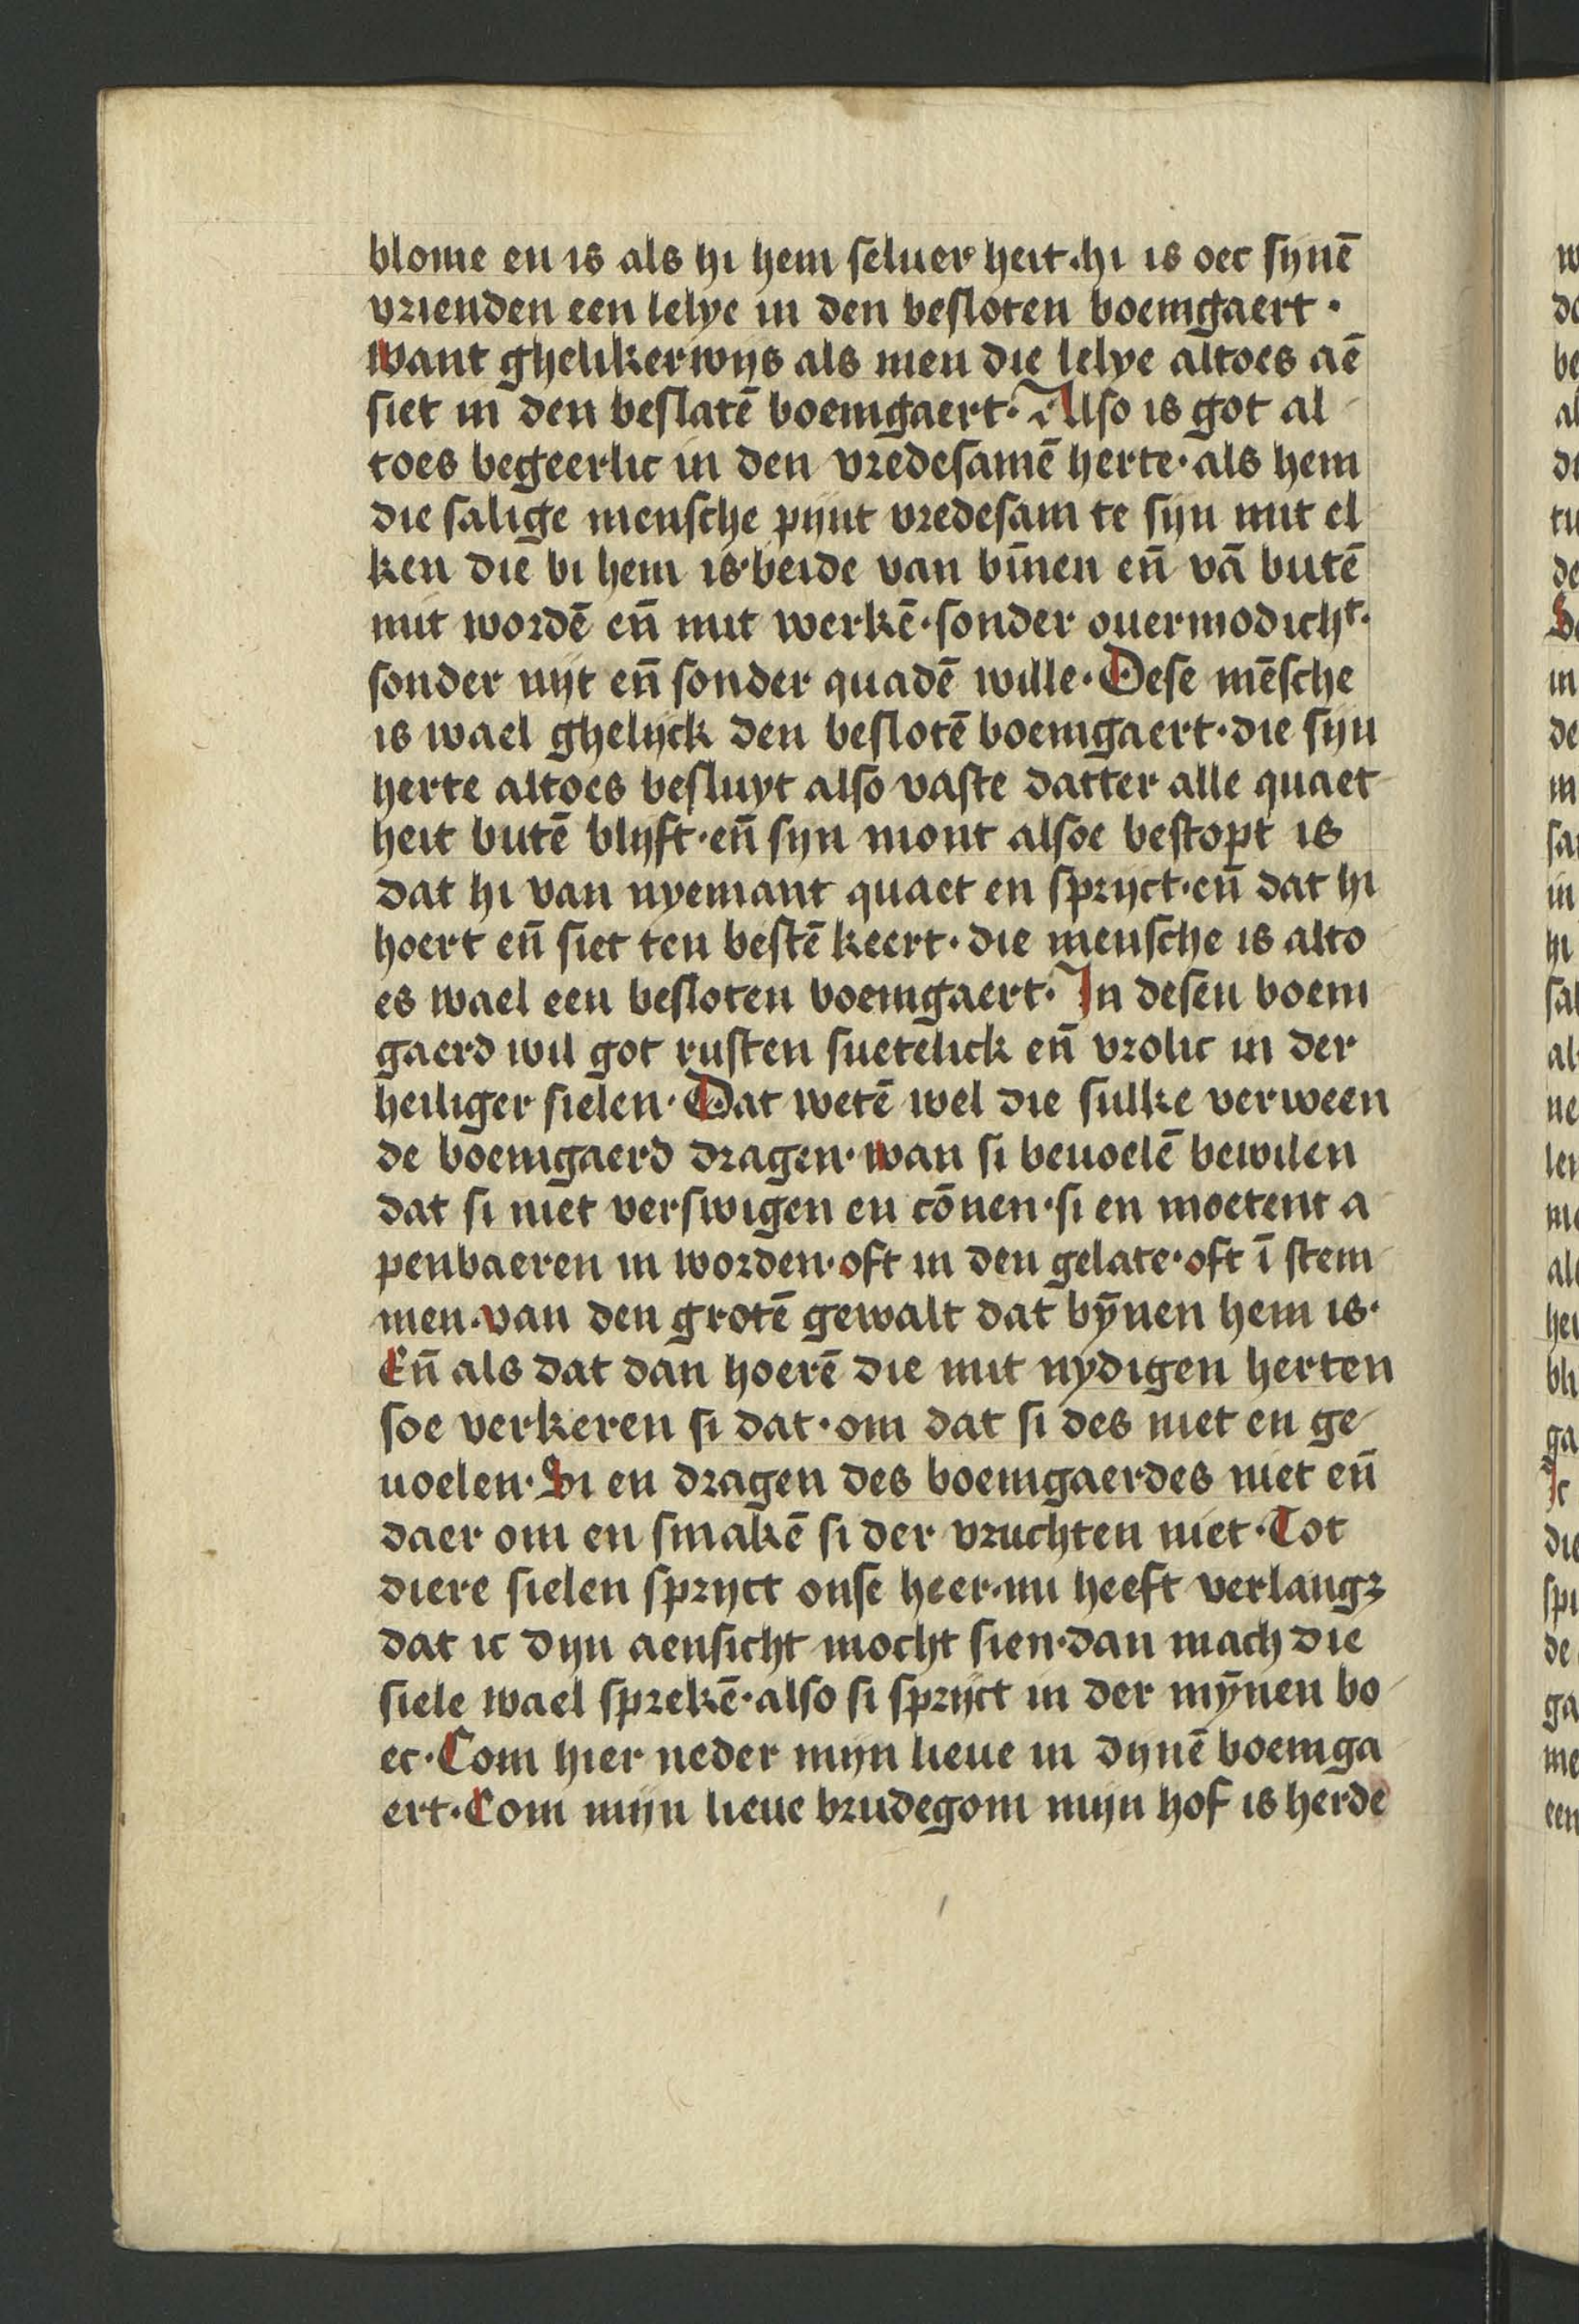 blome en is als hi hem seluer heit·hi is oec synē
vrienden een lelye in den besloten boemgaert·
want ghelikerwijs als men die lelye altoes aē
siet in den beslatē boemgaert·Also is got al
toes begeerlic in den vredesamē herte·als hem
die salige mensche pijnt vredesam te sijn mit el
ken die bi hem is·beide van bīnen en̄ vā butē
mit wordē en̄ mit werkē·sonder ouermodichᵗ·
sonder nijt en̄ sonder quadē wille·Dese mēsche
is wael ghelijck den beslotē boemgaert·die sijn
herte altoes besluyt also vaste datter alle quaet
heit butē blijft·en̄ sijn mont alsoe bestopt is
dat hi van nyemant quaet en sprijct·en̄ dat hi
hoert en̄ siet ten bestē keert·die mensche is alto
es wael een besloten boemgaert·In desen boem
gaerd wil got rusten suetelick en̄ vrolic in der
heiliger sielen·Dat wetē wel die sulke verween
de boemgaerd dragen·wan si beuoelē bewilen
dat si niet verswigen en cōnen·si en moetent a
penbaeren in worden·oft in den gelate·oft ī stem
men·van den grotē gewalt dat bȳnen hem is·
En̄ als dat dan hoerē die mit nydigen herten
soe verkeren si dat·om dat si des niet en ge
uoelen·Si en dragen des boemgaerdes niet en̄
daer om en smakē si der vruchten niet·Tot
diere sielen sprijct onse heer·mi heeft verlangꝫ
dat ic dijn aensicht mocht sien·dan mach die
siele wael sprekē·also si sprijct in der mȳnen bo
ec·Com hier neder mijn lieue in dijnē boemga
ert·Com mijn lieue brudegom mijn hof is herde